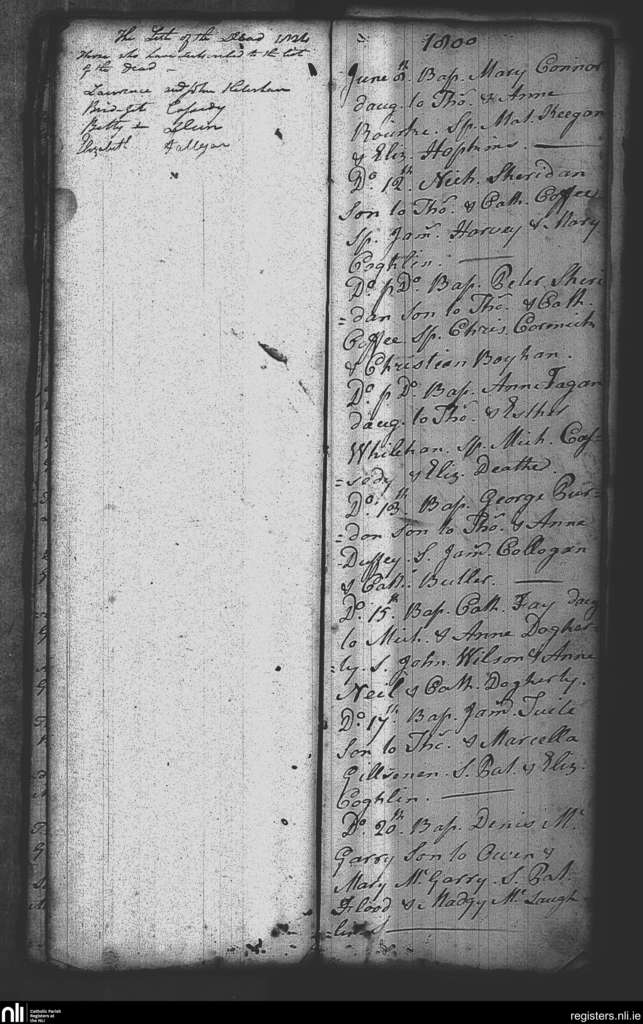 The List of the Dead 1824
Those who have subscribed to the list
of the Dead —
Lawrence and John
Bridget Cassedy
Betty Glein
Elizabeth Fallegar
1800
June 8th. Bap. Mary Connor
daug. to Tho.s & Anne
Rourke. Sp. Mat. Keegan
& Eliz. Hopkins.
Do. 12th. Nich. Sheridan
Son to Tho.s & Cath. Coffee
Sp. Jam.s Harvey & Mary
Coghlin.
Do. p Do. Bap. Peter Sheri
=dan Son to Tho.s & Cath.
Coffee Sp. Chris. Cormick
& Christian Boyhan.
Do. p Do. Bap. Anne Fagan
daug. to Tho.s & Esther
Whilehan. Sp. Mich. Cas=
=sedy & Eliz. Deathe.
Do. 13th. Bap. George Pur=
=don Son to Tho.s & Anne
Duffey. S. Jam.s Collogan
& Cath. Butler.
Do. 15th. Bap. Cath. Fay daug
to Mich. & Anne Dogher=
=ty. S. John Wilson & Anne
Neil & Cath. Dogherty.
Do. 17th. Bap. Jam.s Tuite
Son to Tho.s & Marcella
Gillsenen. S. Pat. & Eliz.
Coghlin.
Do. 20th. Bap. Denis Mc.
Garry Son to Owen &
Mary Mc.Garry S. Pat.
Flood & Madgy Mc.Laugh
=lin
nli
Catholic Parish
Registers at
the NLI
registers.nli.ie